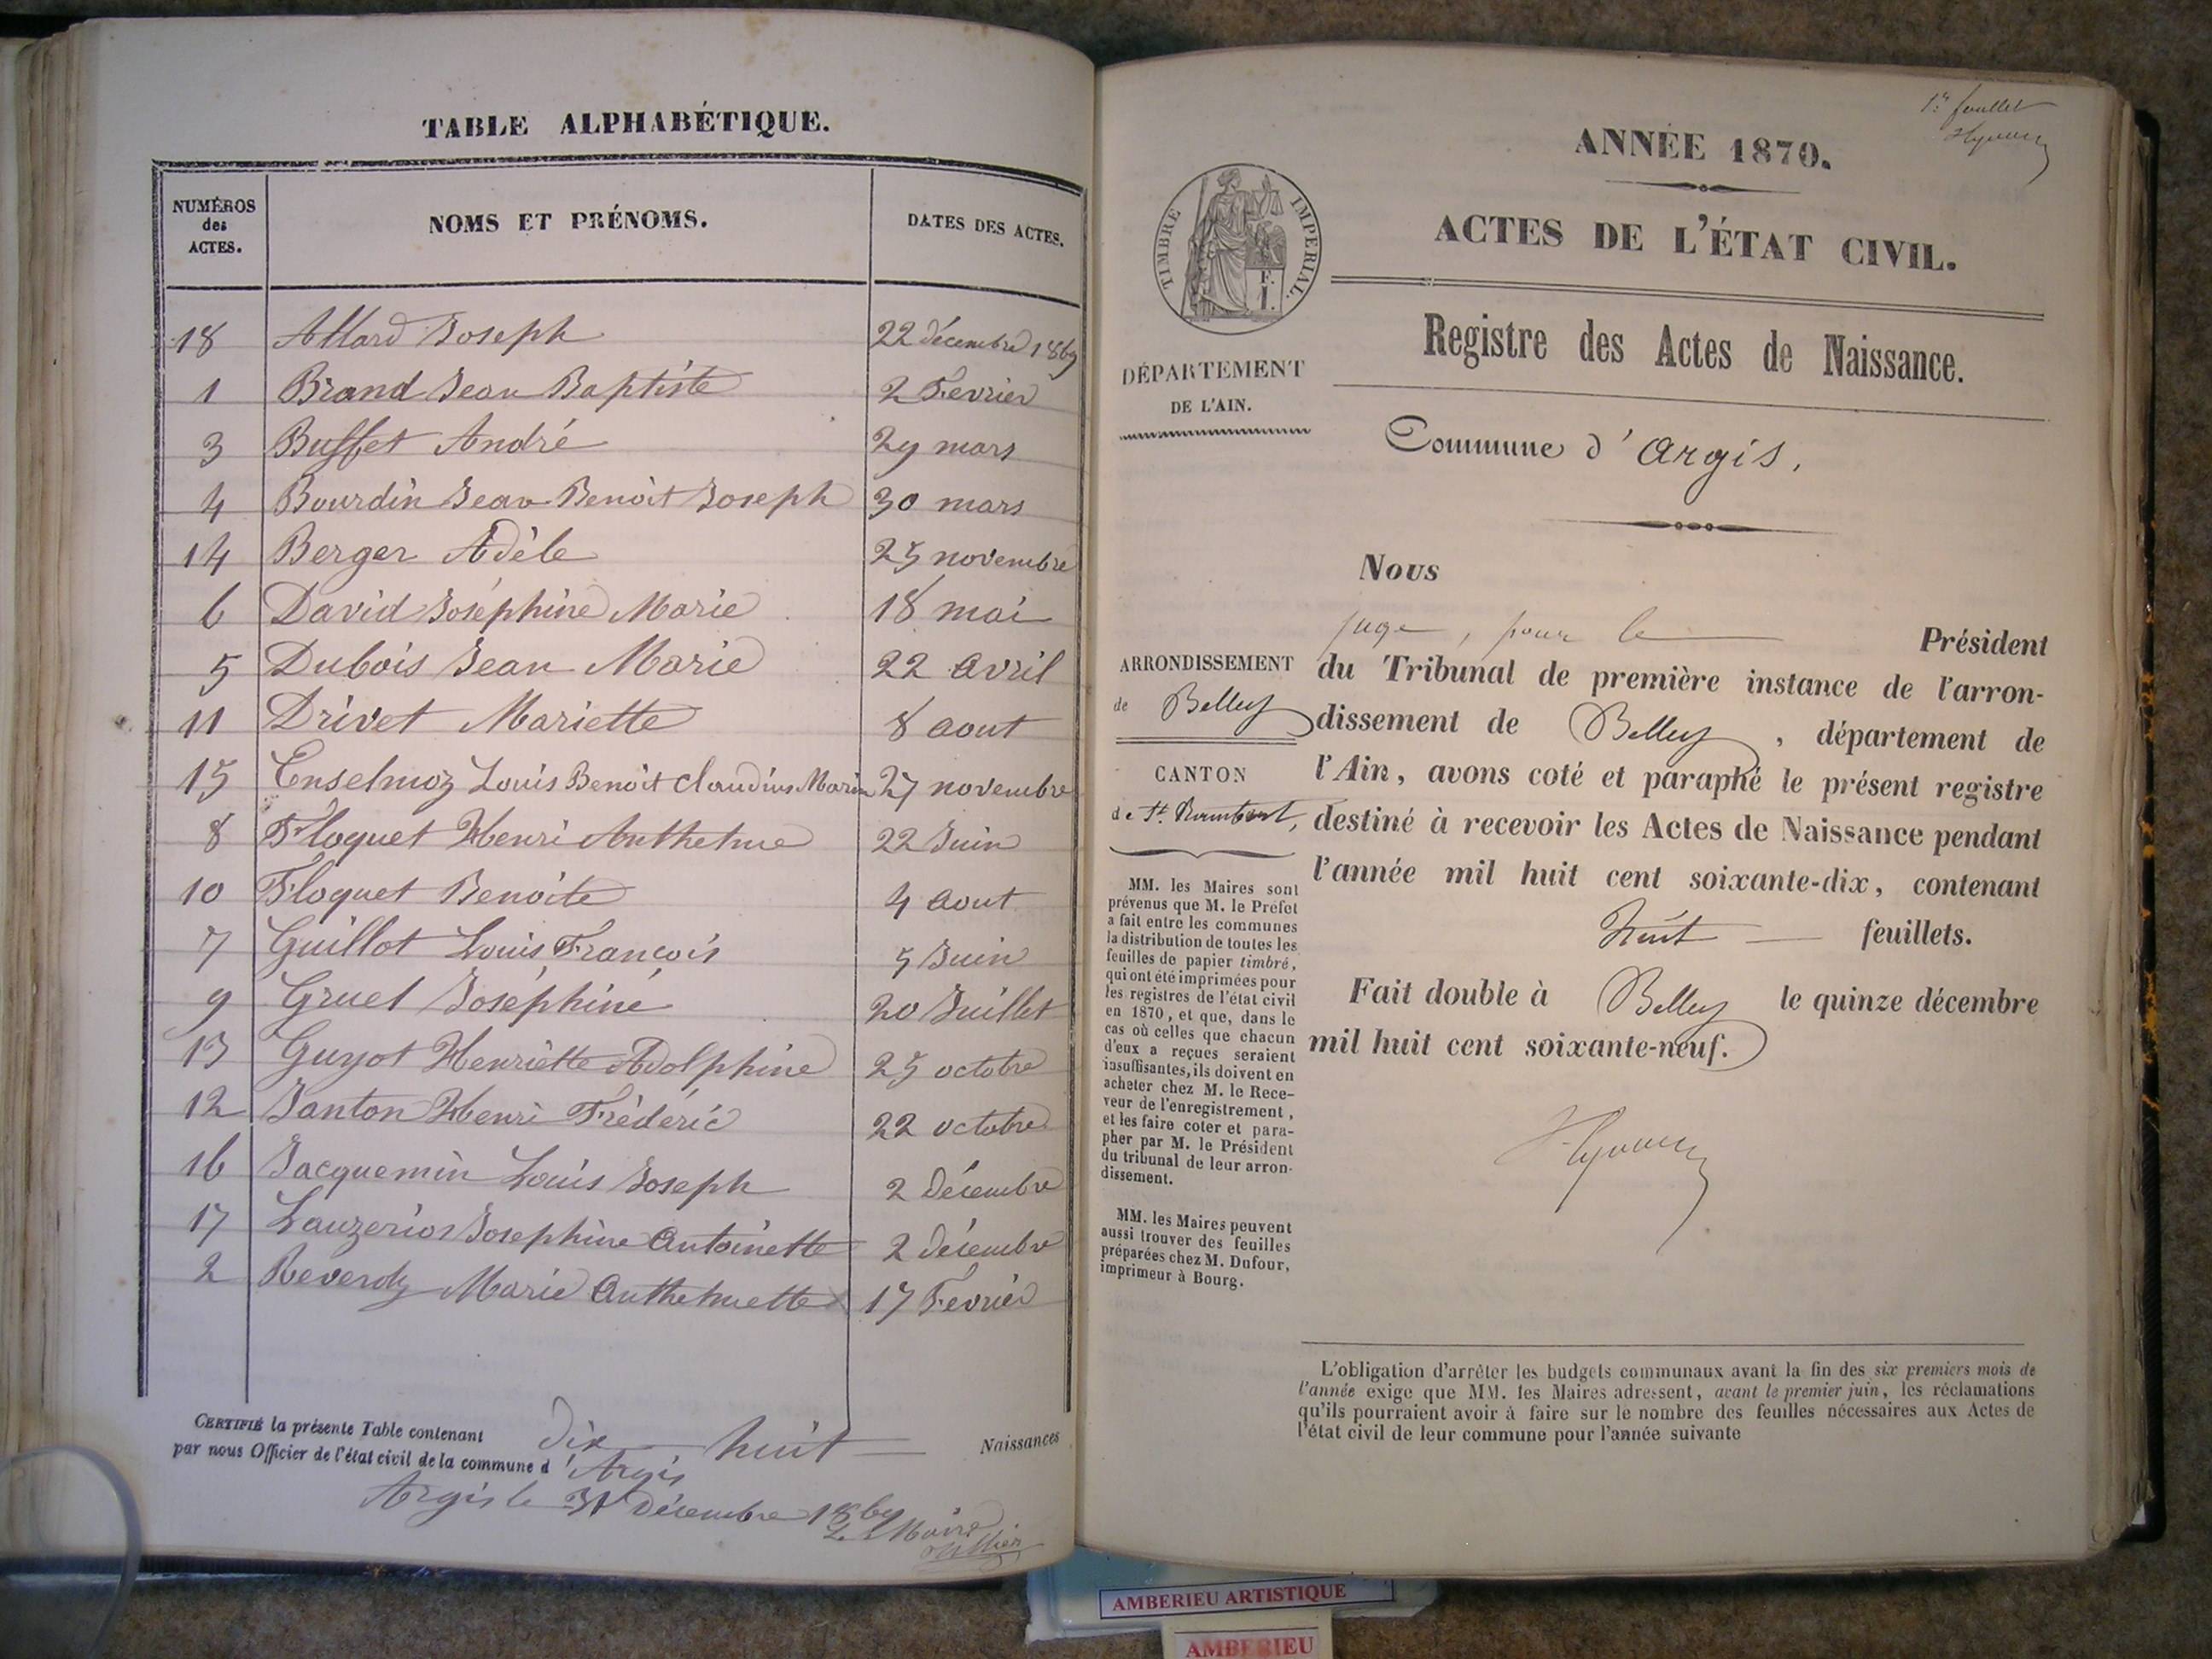 TABLE ALPHABÉTIQUE.
NUMÉROS des ACTES. NOMS ET PRÉNOMS. DATES DES ACTES.
18 Allard Joseph 22 décembre 1869
1 Brand Jean Baptiste 2 Fevrier
3 Buffet André 29 mars
4 Bourdin Jean Benoit Joseph 30 mars
14 Berger Adèle 25 novembre
6 David Joséphine Marie 18 mai
5 Dubois Jean Marie 22 avril
11 Drivet Mariette 8 aout
15 Enselmoz Louis Benoit Claudius Marin 27 novembre
8 Floquet Henri Anthelme 22 Juin
10 Floquet Benoite 4 aout
7 Guillot Louis François 5 Juin
9 Gruel Joséphine 20 Juillet
13 Guyot Henriette Adolphine 25 octobre
12 Janton Henri Fréderic 22 octobre
16 Jacquemin Louis Joseph 2 décembre
17 Lauzerios Josephine Antoinette 2 décembre
2 Reverdy Marie Anthelmette 17 Fevrier
CERTIFIÉ la présente Table contenant dix huit Naissances
par nous Officier de l'état civil de la commune d'Argis
Argis le 31 Décembre 1869
Le Maire
1er feuillet
ANNÉE 1870.
TIMBRE IMPERIAL.
E.
I.
ACTES DE L'ÉTAT CIVIL.
Registre des Actes de Naissance.
DÉPARTEMENT
DE L'AIN.
Commune d'Argis,
Nous
juge, pour le Président
du Tribunal de première instance de l'arron-
dissement de Belley, département de
l'Ain, avons coté et paraphé le présent registre
destiné à recevoir les Actes de Naissance pendant
l'année mil huit cent soixante-dix, contenant
huit feuillets.
Fait double à Belley le quinze décembre
mil huit cent soixante-neuf.
ARRONDISSEMENT
de Belley
CANTON
de St. Rambert,
MM. les Maires sont
prévenus que M. le Préfet
a fait entre les communes
la distribution de toutes les
feuilles de papier timbré,
qui ont été imprimées pour
les registres de l'état civil
en 1870, et que, dans le
cas où celles que chacun
d'eux a reçues seraient
insuffisantes, ils doivent en
acheter chez M. le Rece-
veur de l'enregistrement,
et les faire coter et para-
pher par M. le Président
du tribunal de leur arron-
dissement.
MM. les Maires peuvent
aussi trouver des feuilles
préparées chez M. Dufour,
imprimeur à Bourg.
L'obligation d'arrêter les budgets communaux avant la fin des six premiers mois de
l'année exige que MM. les Maires adressent, avant le premier juin, les réclamations
qu'ils pourraient avoir à faire sur le nombre des feuilles nécessaires aux Actes de
l'état civil de leur commune pour l'année suivante
AMBERIEU ARTISTIQUE
AMBERIEU